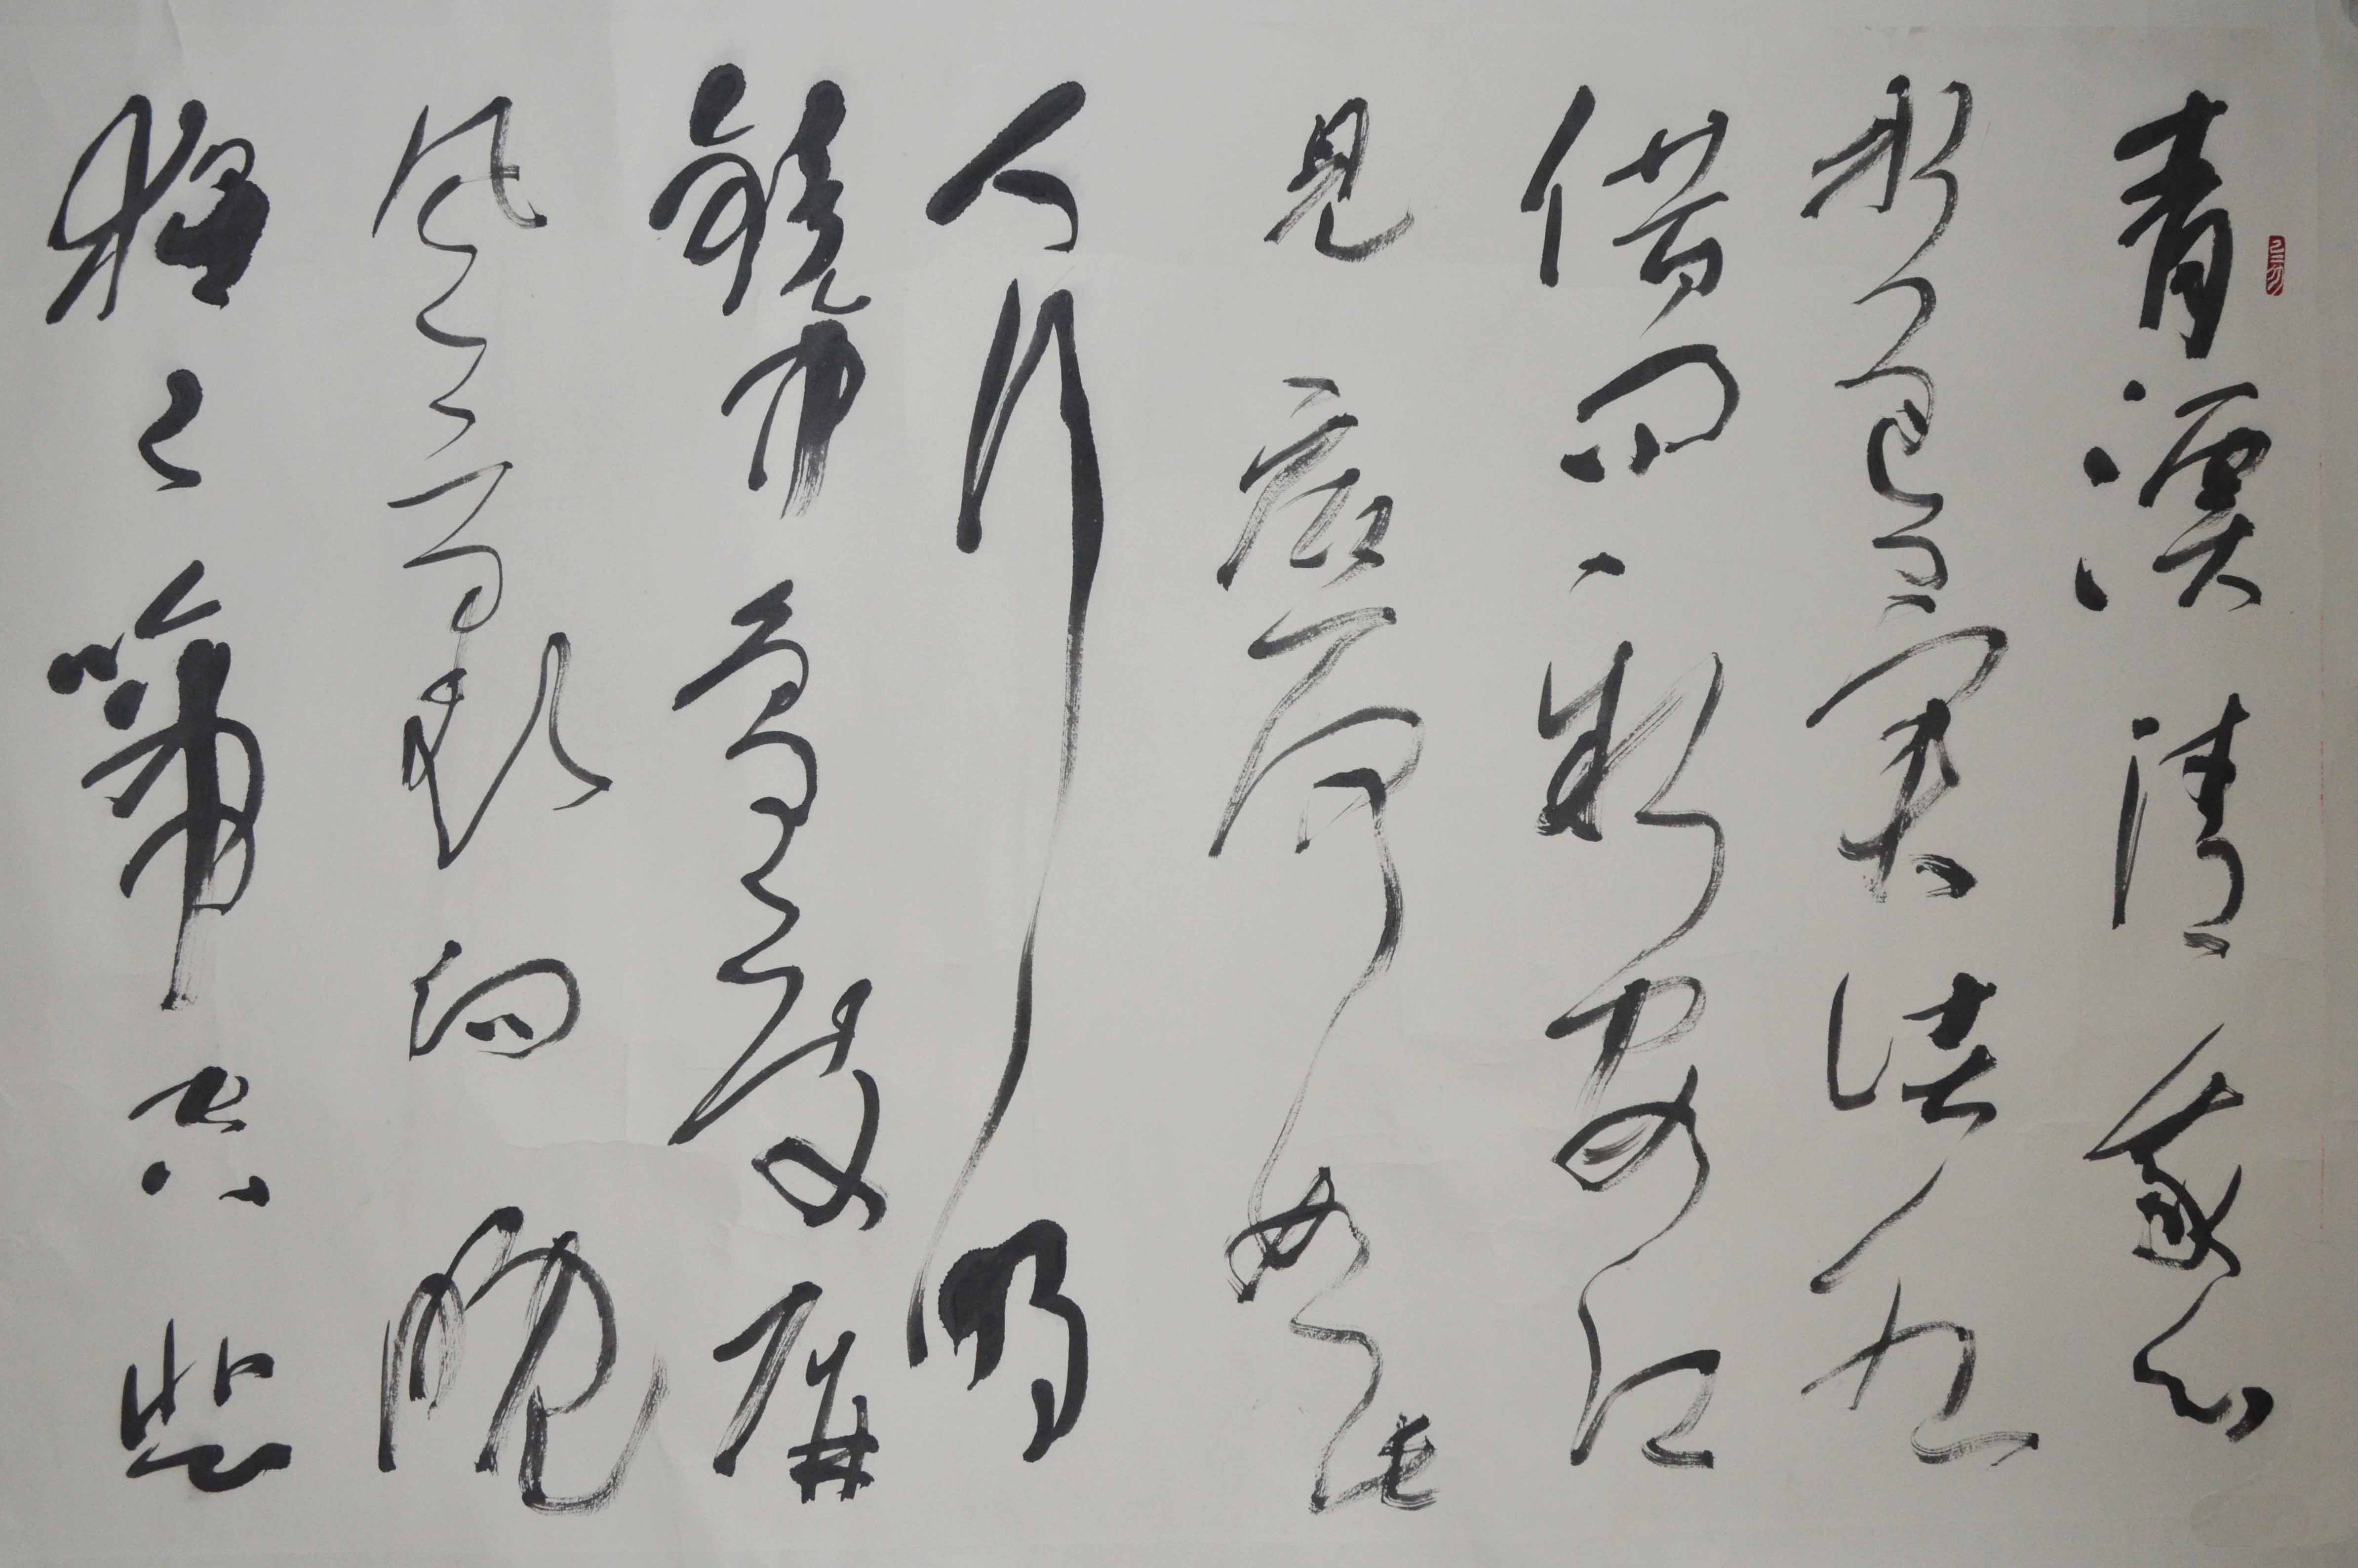 青溪清我心
水色異諸水
借問新安江
見底何如此
人行明
鏡中鳥度屏
風裏向晚
猩々啼空悲